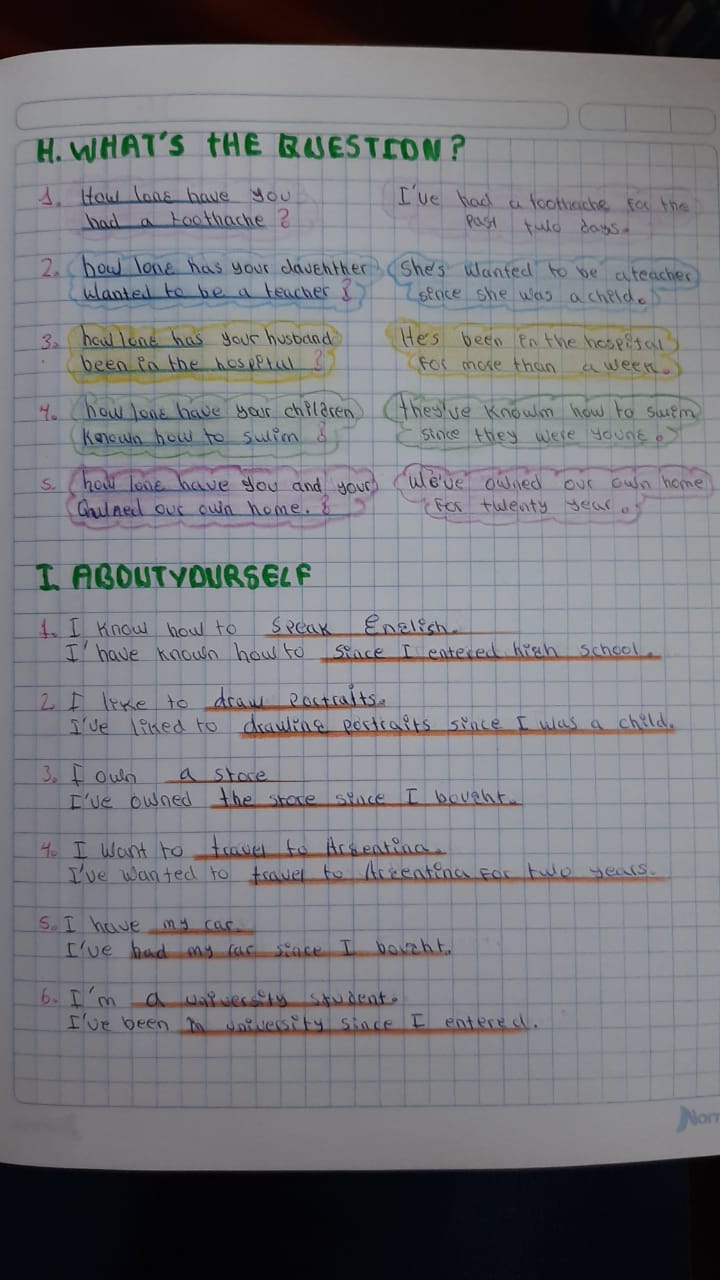 H. WHAT'S THE QUESTION?
1. How lone have you
had a toothache?
I've had a toothache for the
past two days.
2. how lone has your davehther
wanted to be a teacher?
She's wanted to be a teacher
since she was a child.
3. how lone has your husband
been in the hospital?
He's been in the hospital
for more than a week.
4. how lone have your children
Known how to swim?
they've Knowm how to swim
since they were youne.
5. how lone have you and your
Owned our own home.?
We've owned our own home
for twenty year.
I. ABOUT YOURSELF
1. I Know how to speak English.
I'have known how to since I entered high school.
2. I like to draw portraits.
I've liked to drawing portraits since I was a child.
3. I own a store
I've owned the store since I bought.
4. I want to travel to Argentina.
I've wanted to travel to Argentina for two years.
5. I have my car.
I've had my car since I bought.
6. I'm a university student.
I've been in university since I entered.
Norm